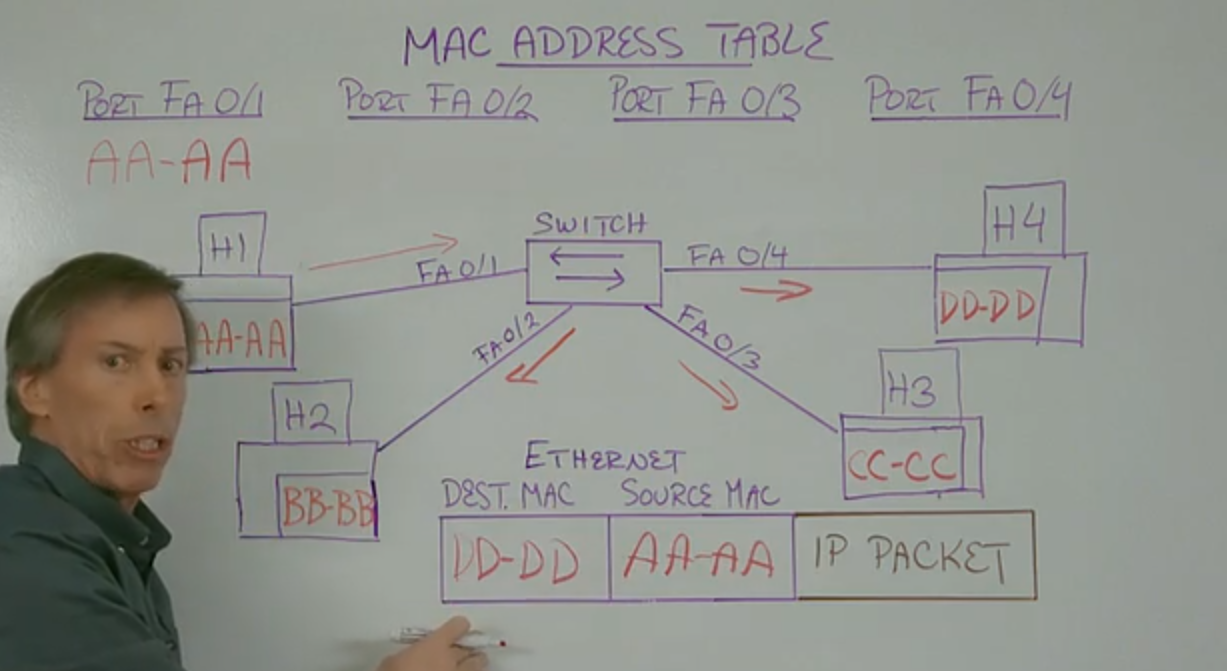 MAC ADDRESS TABLE
PORT FA 0/1 PORT FA 0/2 PORT FA 0/3 PORT FA 0/4
AA-AA
SWITCH
H1
H4
FA 0/1
FA 0/4
AA-AA
DD-DD
FA 0/2
FA 0/3
H2
H3
BB-BB
CC-CC
ETHERNET
DEST. MAC SOURCE MAC
DD-DD AA-AA IP PACKET